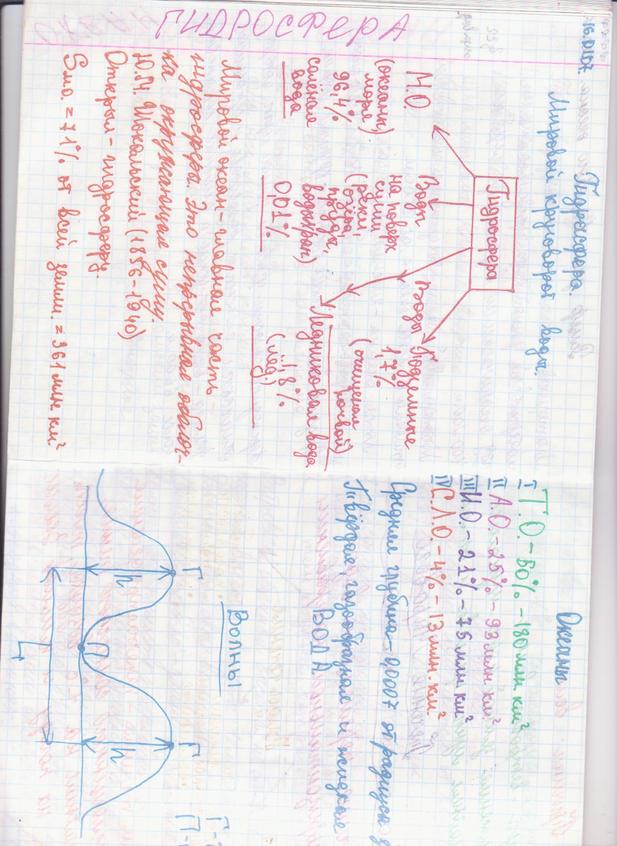 ГИДРОСФЕРА
16.01.17.
Гидросфера.
Мировой круговорот воды.
Гидросфера
М.О
(океаны,
моря)
96,4%
солёная
вода
Воды
на поверх
суши
(реки,
озёра,
пруда,
водохран)
0,01%
Воды
Подземные
1,7%
(очищеная
почвой)
Ледниковая вода
1,8%
(лёд)
Мировой океан-главная часть
гидросферы. Это непрерывная оболоч-
ка окружающая сушу.
Ю.М. Шокальский (1856-1940)
Открыл - гидросферу.
Sм.о. = 71% от всей земли. = 361 млн. км²
Океаны
I Т.О. - 50% - 180 млн км²
II А.О. - 25% - 93 млн км²
III И.О. - 21% - 75 млн км²
IV С.Л.О. - 4% - 13 млн. км²
Средняя глубина - 0,0007 от радиуса
Твёрдая, газообразная и жидкая
ВОДА
Волны
Г
h
П
Г
h
L
Г-
П-